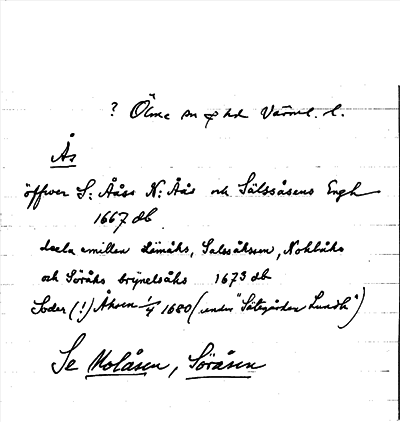 ? Ölme sn o hd Värml. l.
Ås
öffwer S: Åås N: Åås och Sälssåsens Engh
1667 db
deela emillan Låmåhs, Salssåhsen, Nohlåhs
och Söråhs brynelsåhs 1673 db
Söder (!) Åhsen 1/4 1680 (under "Sätegården Lundh")
Se Nolåsen, Söråsen